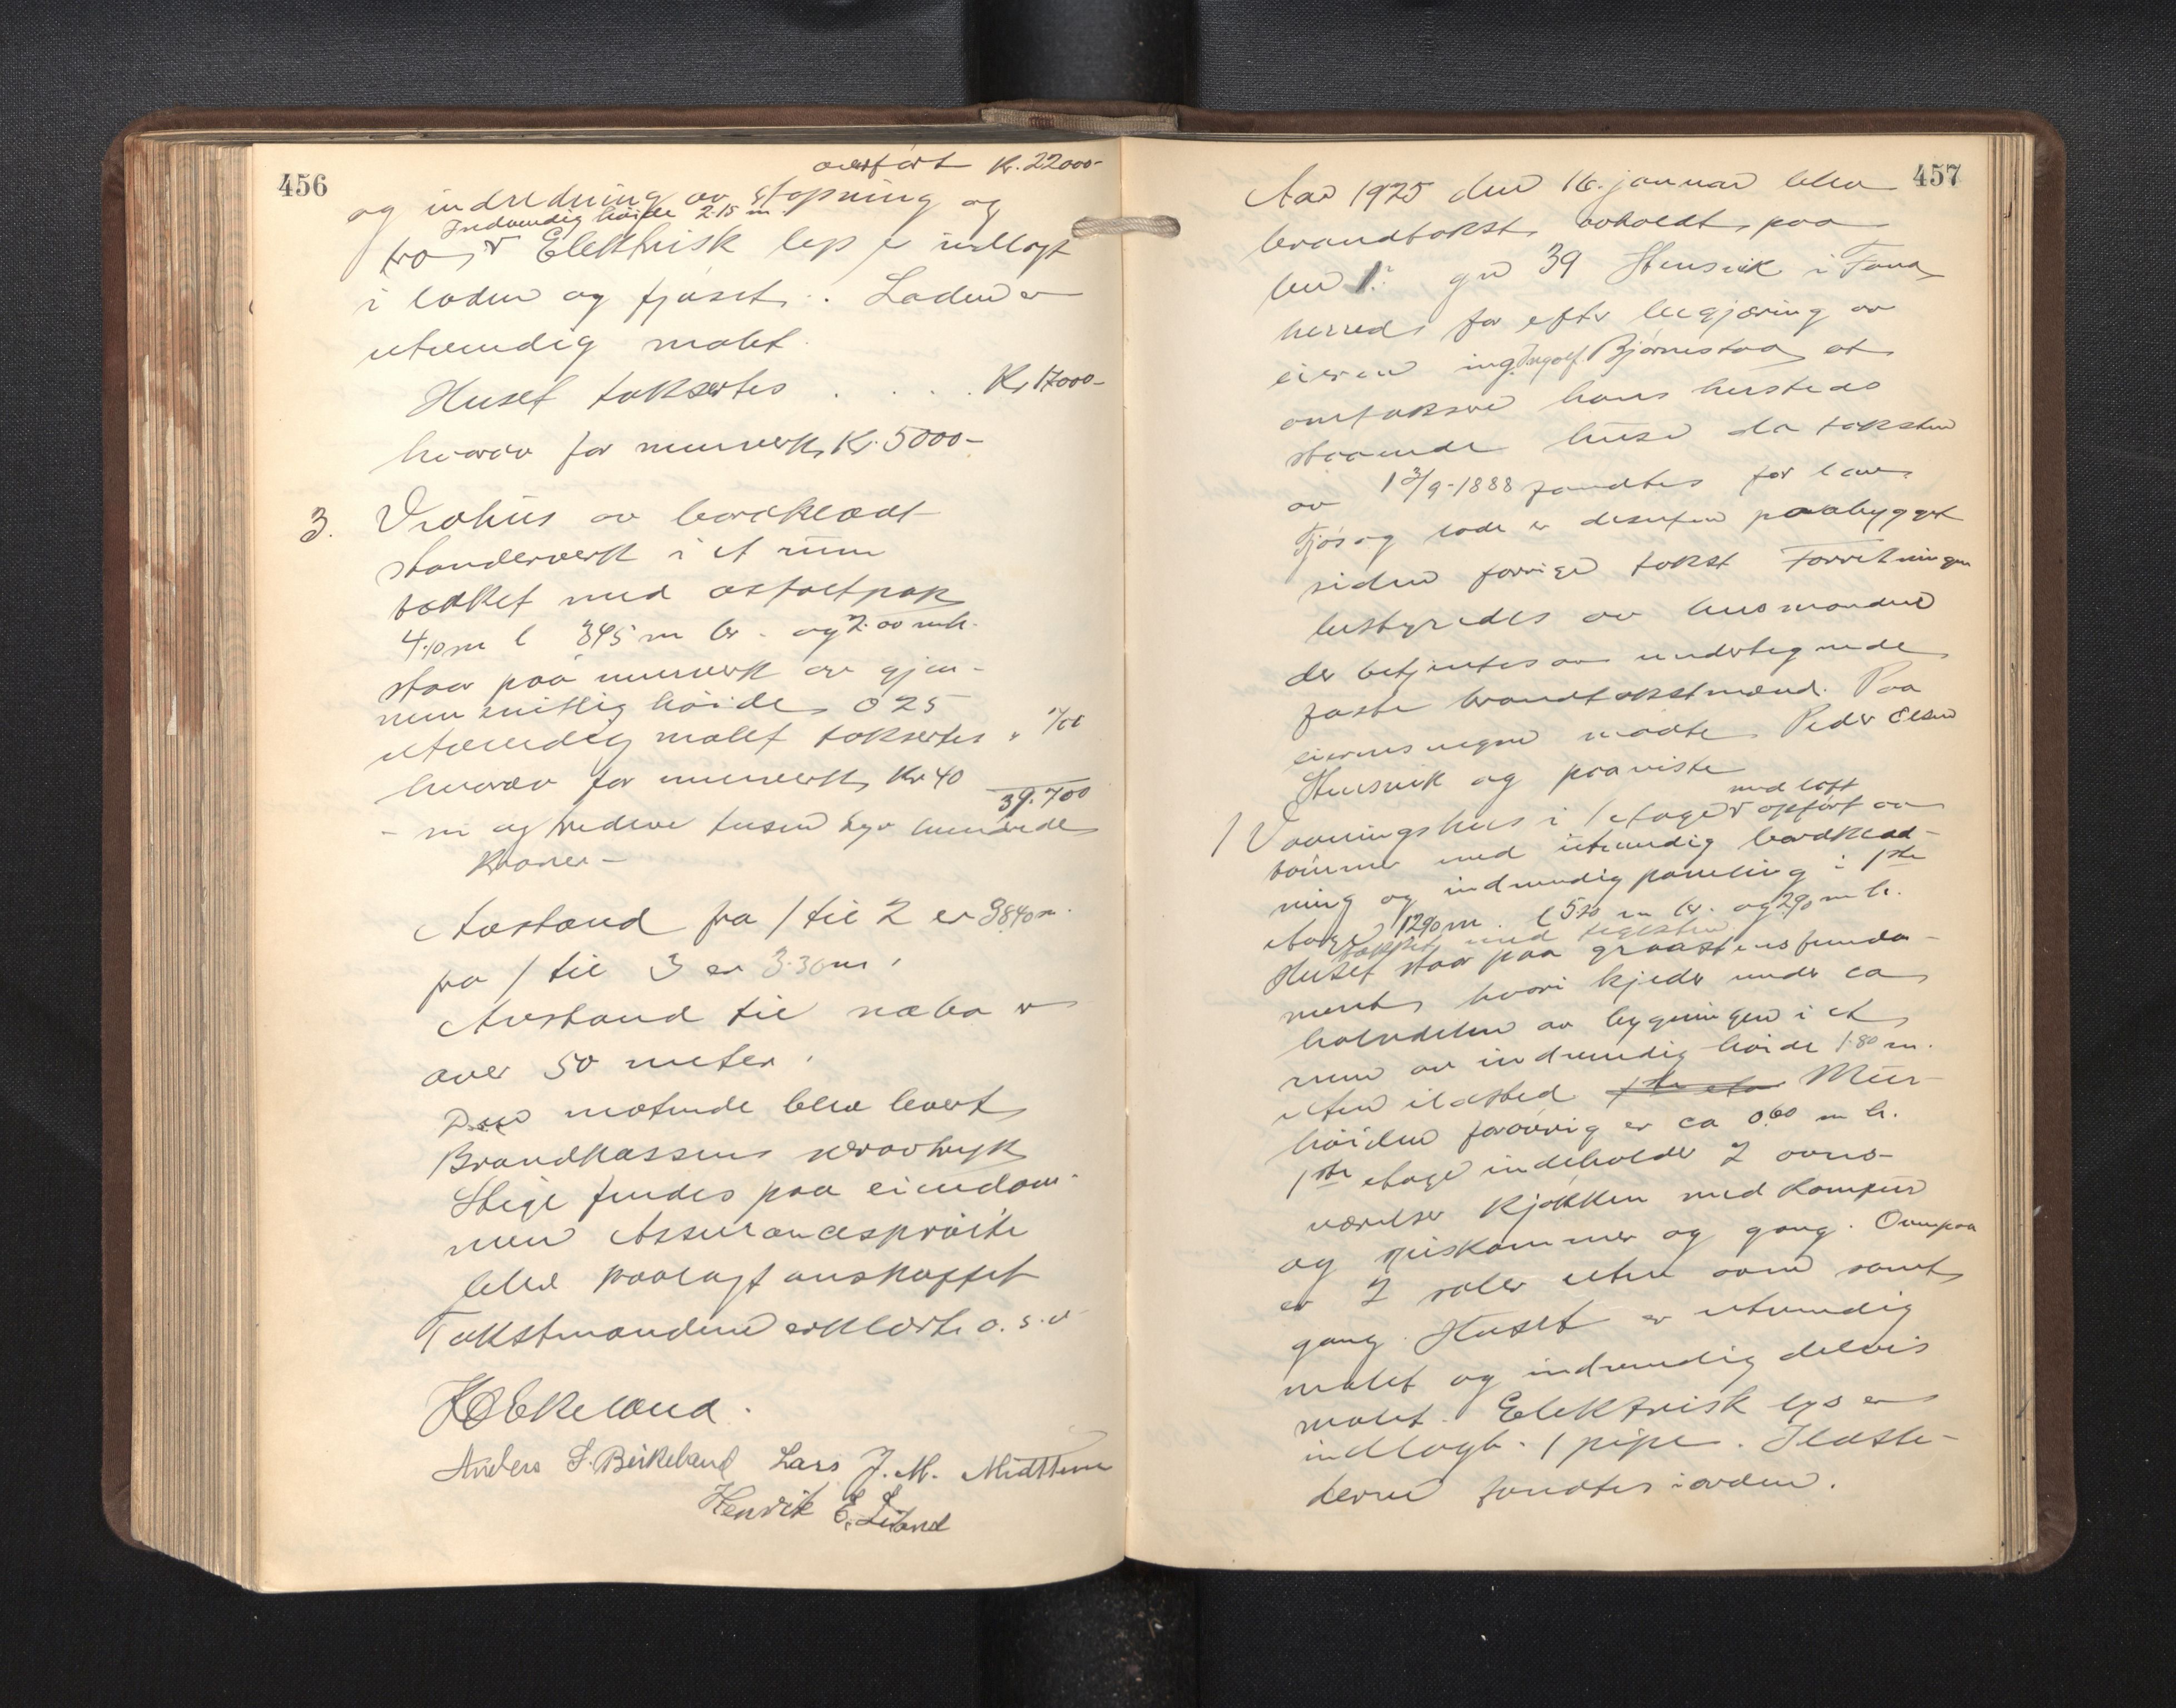 456
overført Kr. 22000-
og indredning av støpning og
Indvendig høide 2.15 m.
træ, Elektrisk lys er indlagt
i laden og fjøset. Laden er
utvendig malt.
Huset takseres . . . . Kr 17000-
hvorav for murverk Kr. 5000-
3. Vedhus av bordklædt
standerverk i et rum
tækket med asfaltpap
4.10 m l 3.45 m br. og 2.00 m h.
staar paa murverk av gjen-
nemsnitlig høide 0.25
utvendig malt takseres " 700
hvorav for murverk Kr 40
39.700
- ni og tredive tusen syv hundrede
Kroner -
Avstand fra 1 til 2 er 38.40 m.
fra 1 til 3 er 3.30 m.
Avstand til nabo er
over 50 meter.
Den møtende blev levert
Brandkassens særavtryk
Stige findes paa eiendom-
men Assurancesprøite
blev paalagt anskaffet
Takstmændene erklærte o.s.v.
K O Ekeland.
Anders S. Birkeland Lars J. M. Midttun
Henrik E. Liland
457
Aar 1925 den 16. januar blev
brandtakst avholdt paa
bnr 1. gnr 39 Stensvik i Fana
herred for efter begjæring av
eieren ing. Ingolf Bjørnestad at
omtaksere hans hersteds
staaende huse da taksten
av 13/9-1888 fandtes for lav.
Fjøs og lade er desuten paabygget
siden forrige takst Forretningen
bestyredes av lensmanden
der betjentes av undertegnede
faste brandtakstmænd. Paa
eierens vegne møtte Peder Olsen
Stensvik og paaviste
med loft
1 Vaaningshus i 1 etage opført av
tømmer med utvendig bordklæd-
ning og indvendig paneling i 1ste
etage 12.90 m. l 5.50 m br. og 2.90 m h.
tækket med teglsten
Huset staar paa graastensfunda-
ment, hvori kjelder under ca
halvdelen av bygningen i et
rum av indvendig høide 1.80 m.
uten ildsted 1ste eta Mur-
høiden forøvrig er ca 0.60 m h.
1ste etage indeholder 2 ovns-
værelser kjøkken med komfur
og spiskammer og gang. Ovenpaa
er 2 saler uten ovn samt
gang. Huset er utvendig
malt og indvendig delvis
malt. Elektrisk lys er
indlagt. 1 pipe. Ildste-
derne fandtes i orden.